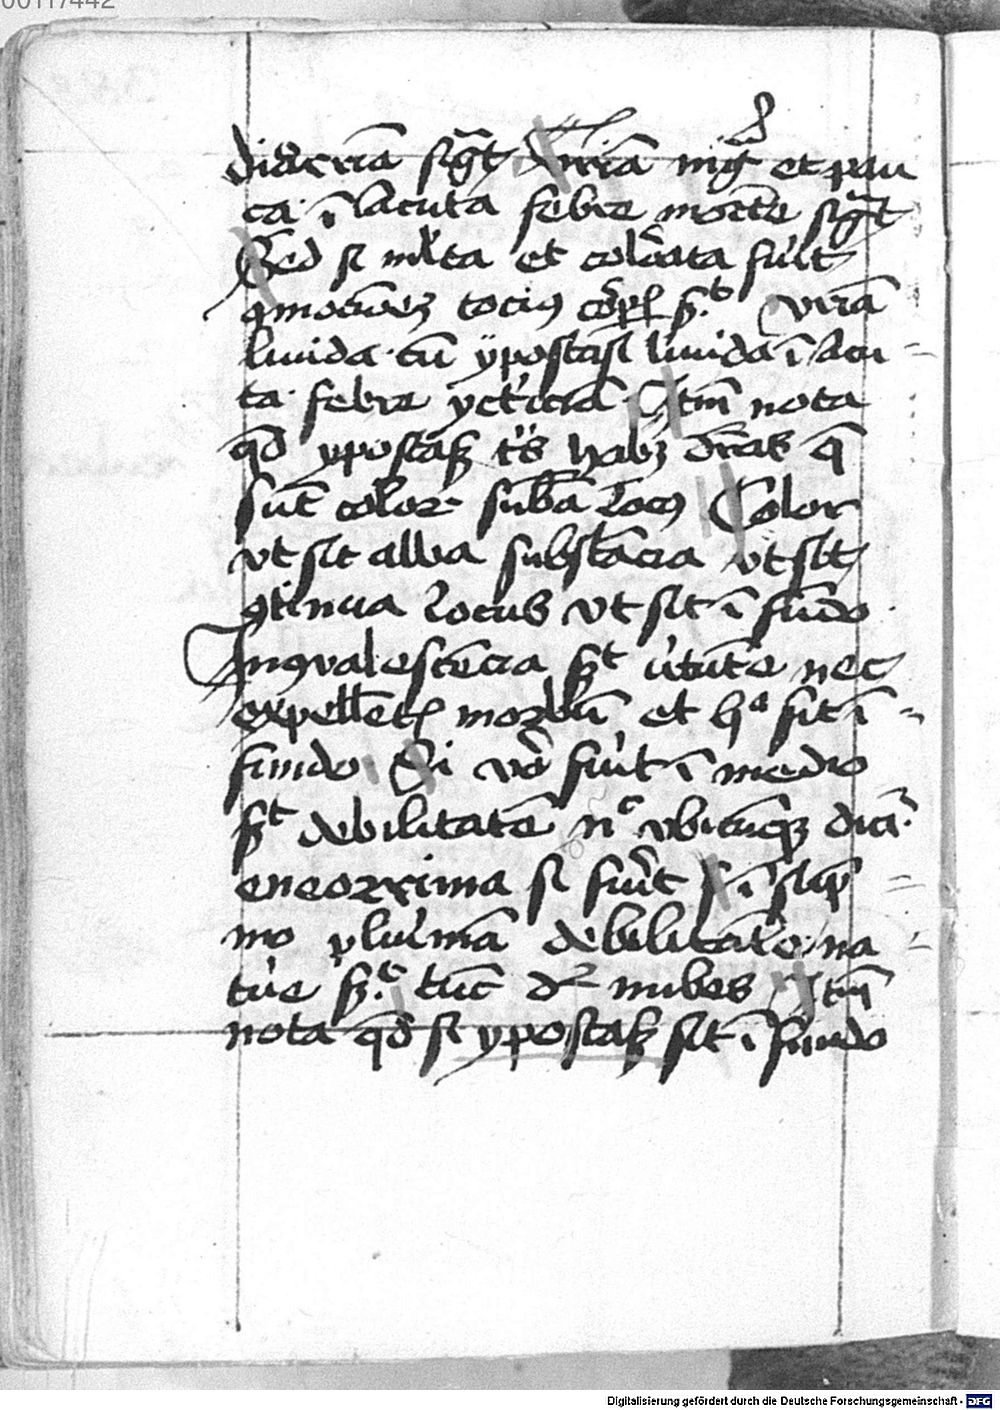 00117442
disuriā sigt Uriā nigᵃ et pau
ca ī lacuta febre mortē sigt
Sed si mlta et colorata fuit
ꝯmocionez tocius corpis sᵗ Uriā
liuida cū ypostasi liuida ī acu
ta febre yctericiā Itm nota
qd ypostasis habz drias q̄
sūt color subā locus Color
vt sit alba substācia vt sit
ꝯtinua locus vt sit ī fundo
Inqualescēcia sᵗ v̓tutē nec
expellētis morbū et hᵃ sit ī
fundo Si vero fuit ī medio
sᵗ debilitatē nᵉ vbicūqz dicit
eneorxima si fuit ī sup
mo plurimā debilitatē na
ture sᵗ tūc dr nubes Itm
nota qd si ypostasis sit ī fundo
Digitalisierung gefördert durch die Deutsche Forschungsgemeinschaft - DFG